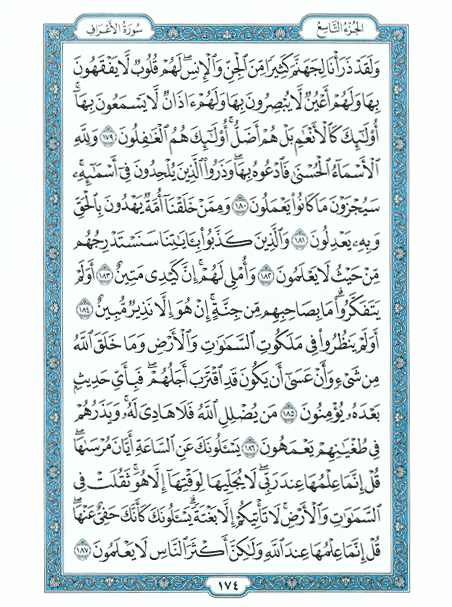 الجُزءُ التَّاسِعُ
سُورَةُ الأَعْرَافِ
وَلَقَدْ ذَرَأْنَا لِجَهَنَّمَ كَثِيرًا مِّنَ ٱلْجِنِّ وَٱلْإِنسِ ۖ لَهُمْ قُلُوبٌ لَّا يَفْقَهُونَ
بِهَا وَلَهُمْ أَعْيُنٌ لَّا يُبْصِرُونَ بِهَا وَلَهُمْ ءَاذَانٌ لَّا يَسْمَعُونَ بِهَآ ۚ
أُو۟لَـٰٓئِكَ كَٱلْأَنْعَـٰمِ بَلْ هُمْ أَضَلُّ ۚ أُو۟لَـٰٓئِكَ هُمُ ٱلْغَـٰفِلُونَ ١٧٩ وَلِلَّهِ
ٱلْأَسْمَآءُ ٱلْحُسْنَىٰ فَٱدْعُوهُ بِهَا ۖ وَذَرُوا۟ ٱلَّذِينَ يُلْحِدُونَ فِىٓ أَسْمَـٰٓئِهِۦ ۚ
سَيُجْزَوْنَ مَا كَانُوا۟ يَعْمَلُونَ ١٨٠ وَمِمَّنْ خَلَقْنَآ أُمَّةٌ يَهْدُونَ بِٱلْحَقِّ
وَبِهِۦ يَعْدِلُونَ ١٨١ وَٱلَّذِينَ كَذَّبُوا۟ بِـَٔايَـٰتِنَا سَنَسْتَدْرِجُهُم
مِّنْ حَيْثُ لَا يَعْلَمُونَ ١٨٢ وَأُمْلِى لَهُمْ ۚ إِنَّ كَيْدِى مَتِينٌ ١٨٣ أَوَلَمْ
يَتَفَكَّرُوا۟ ۗ مَا بِصَاحِبِهِم مِّن جِنَّةٍ ۚ إِنْ هُوَ إِلَّا نَذِيرٌ مُّبِينٌ ١٨٤
أَوَلَمْ يَنظُرُوا۟ فِى مَلَكُوتِ ٱلسَّمَـٰوَٰتِ وَٱلْأَرْضِ وَمَا خَلَقَ ٱللَّهُ
مِن شَىْءٍ وَأَنْ عَسَىٰٓ أَن يَكُونَ قَدِ ٱقْتَرَبَ أَجَلُهُمْ ۖ فَبِأَىِّ حَدِيثٍۭ
بَعْدَهُۥ يُؤْمِنُونَ ١٨٥ مَن يُضْلِلِ ٱللَّهُ فَلَا هَادِىَ لَهُۥ ۚ وَيَذَرُهُمْ
فِى طُغْيَـٰنِهِمْ يَعْمَهُونَ ١٨٦ يَسْـَٔلُونَكَ عَنِ ٱلسَّاعَةِ أَيَّانَ مُرْسَىٰهَا ۖ
قُلْ إِنَّمَا عِلْمُهَا عِندَ رَبِّى ۖ لَا يُجَلِّيهَا لِوَقْتِهَآ إِلَّا هُوَ ۚ ثَقُلَتْ فِى
ٱلسَّمَـٰوَٰتِ وَٱلْأَرْضِ ۚ لَا تَأْتِيكُمْ إِلَّا بَغْتَةً ۗ يَسْـَٔلُونَكَ كَأَنَّكَ حَفِىٌّ عَنْهَا ۖ
قُلْ إِنَّمَا عِلْمُهَا عِندَ ٱللَّهِ وَلَـٰكِنَّ أَكْثَرَ ٱلنَّاسِ لَا يَعْلَمُونَ ١٨٧
١٧٤